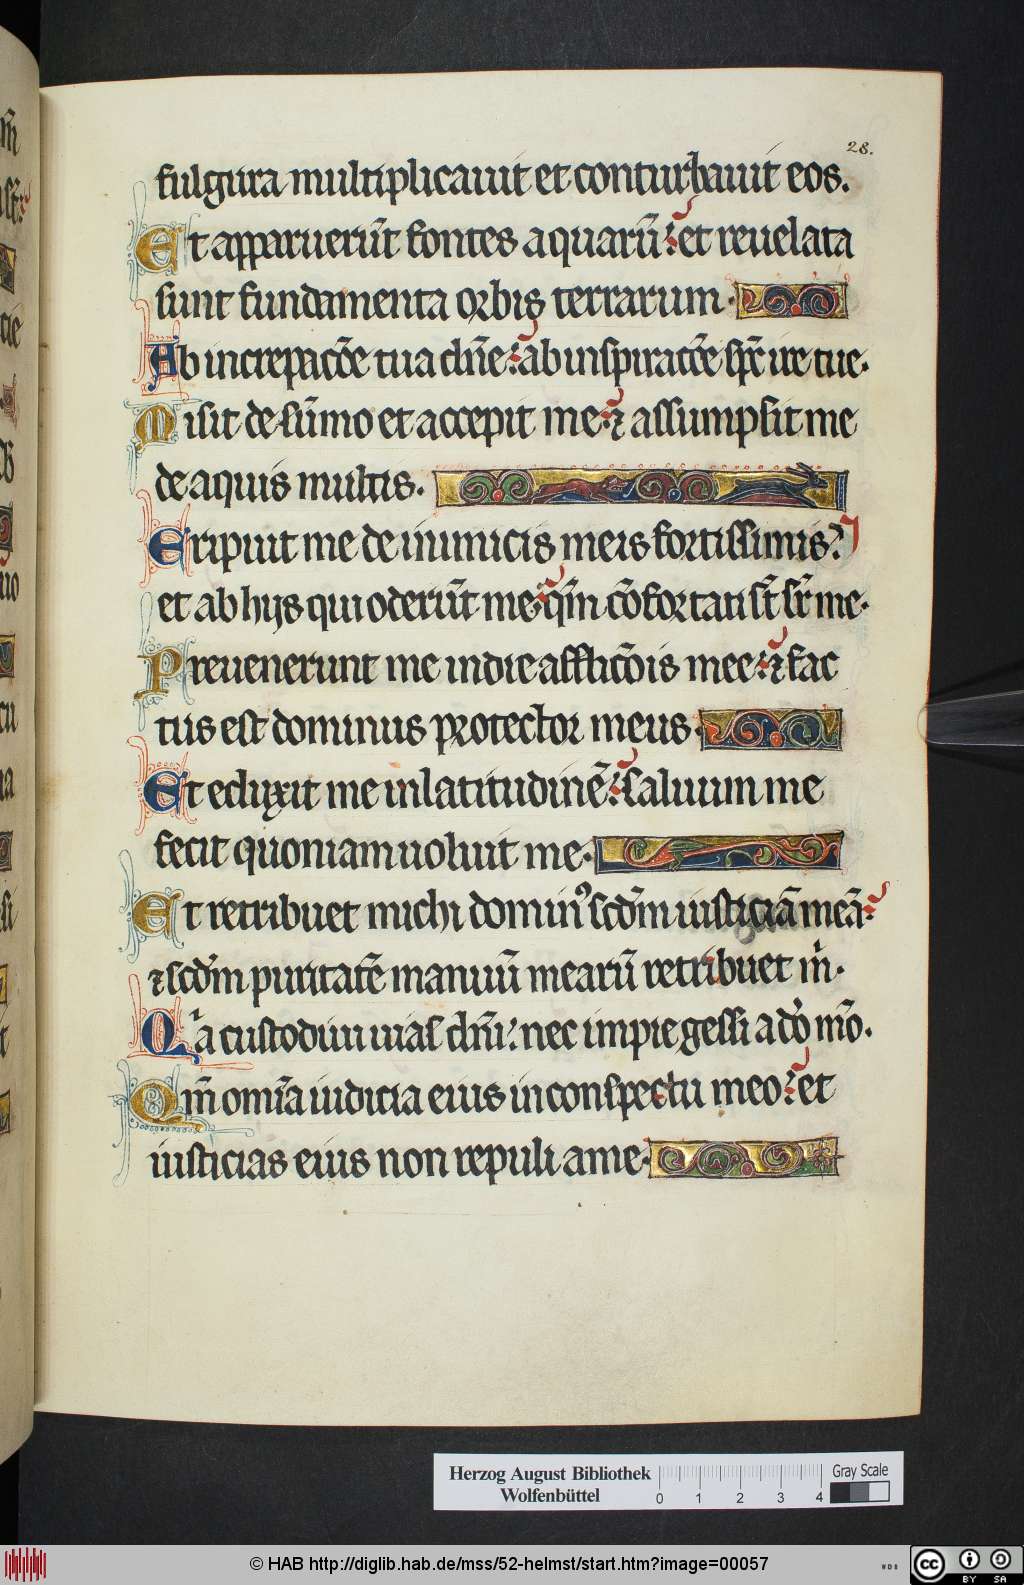 28.
fulgura multiplicauit et conturbauit eos.
Et apparuerūt fontes aquarū: et reuelata
sunt fundamenta orbis terrarum.
Ab increpacōe tua dn̄e: ab inspiracōe spc̄ ire tue.
Misit de sūmo et accepit me: ⁊ assumpsit me
de aquis multis.
Eripuit me de inimicis meis fortissimis:
et ab hijs qui oderūt me: qm̄ cōfortati st̄ sr̄ me.
Preuenerunt me in die afflictōis mee: ⁊ fac
tus est dominus protector meus.
Et eduxit me in latitudinē: saluum me
fecit quoniam uoluit me.
Et retribuet michi dominꝰ scdm̄ iusticiā meā:
⁊ scdm̄ puritatē manuū mearū retribuet m̍.
Qͥa custodiui uias dn̄i: nec impie gessi a dō mō.
Qm̄ omīa iudicia eius in conspectu meo: et
iusticias eius non repuli a me.
Herzog August Bibliothek
Wolfenbüttel
0 1 2 3 4
Gray Scale
© HAB http://diglib.hab.de/mss/52-helmst/start.htm?image=00057
WDB
CC BY SA